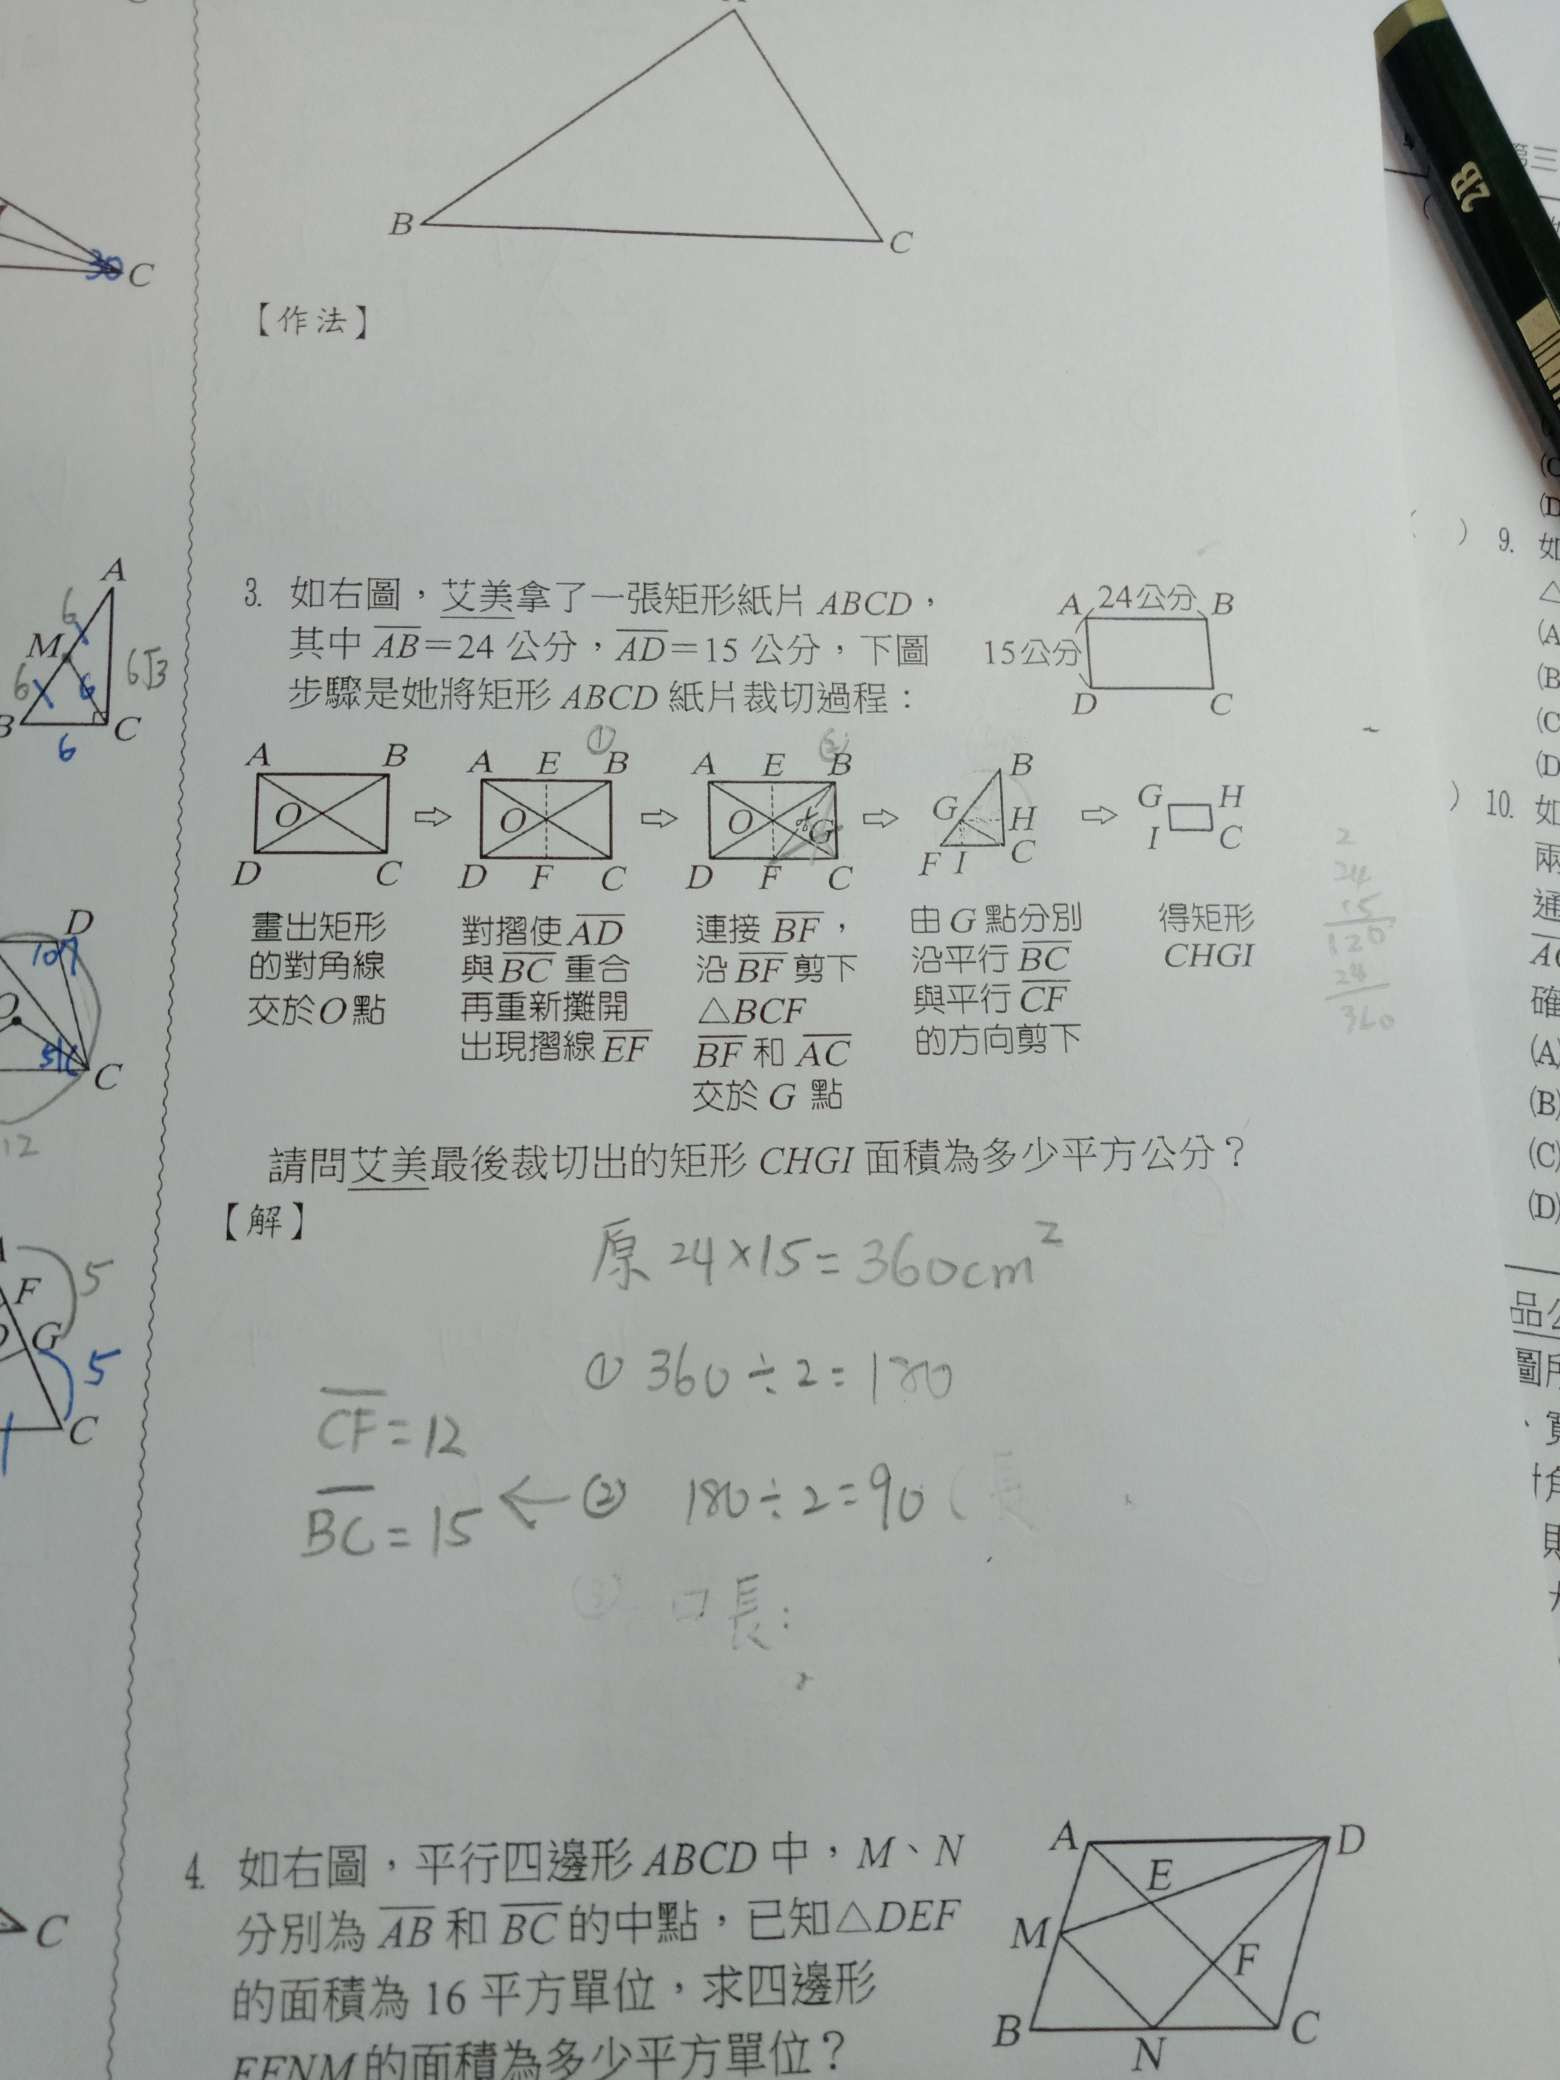 B
C
【作法】
30
C
2B
第三
3. 如右圖，艾美拿了一張矩形紙片 ABCD，
其中 AB＝24 公分，AD＝15 公分，下圖
步驟是她將矩形 ABCD 紙片裁切過程：
A 24公分 B
15公分
D C
A
6
M
6 6 6√3
B C
6
① ②
A B
O
D C
A E B
O
D F C
A E B
O G
D F C
B
G H
F I C
G H
I C
畫出矩形
的對角線
交於O點
對摺使 AD
與 BC 重合
再重新攤開
出現摺線 EF
連接 BF，
沿 BF 剪下
△BCF
BF 和 AC
交於 G 點
由 G 點分別
沿平行 BC
與平行 CF
的方向剪下
得矩形
CHGI
2
24
15
120
24
360
D
C
12
請問艾美最後裁切出的矩形 CHGI 面積為多少平方公分？
【解】
原 24×15=360cm²
① 360÷2=180
CF=12
BC=15 ← ② 180÷2=90 (長
③ 口長:
F 5
G
5
C
C
4. 如右圖，平行四邊形 ABCD 中，M、N
分別為 AB 和 BC 的中點，已知△DEF
的面積為 16 平方單位，求四邊形
EFNM 的面積為多少平方單位？
A D
E
M
F
B N C
) 9. 如
△
(A
(B
(C
(D
) 10. 如
兩
通
確
(A)
(B)
(C)
(D)